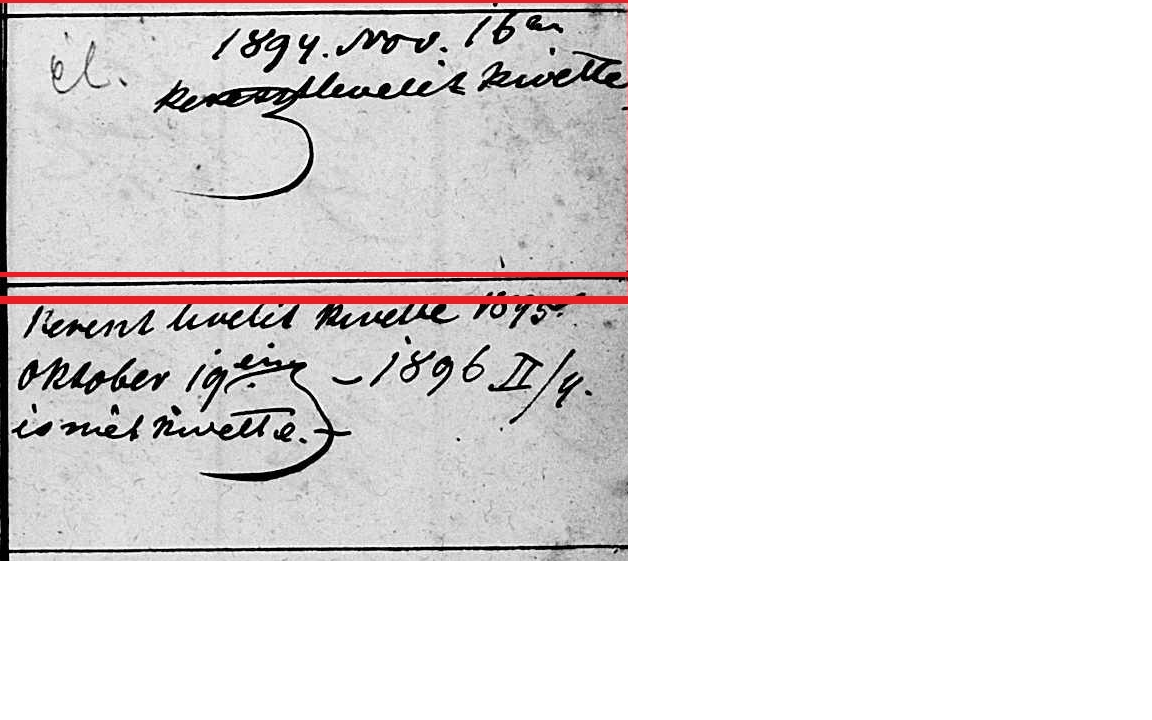 él. 1894. Nov. 16án
Keresztlevelét kivette
Kereszt levelét kivette 1895.
Október 19én – 1896 II/4.
ismét kivette. –